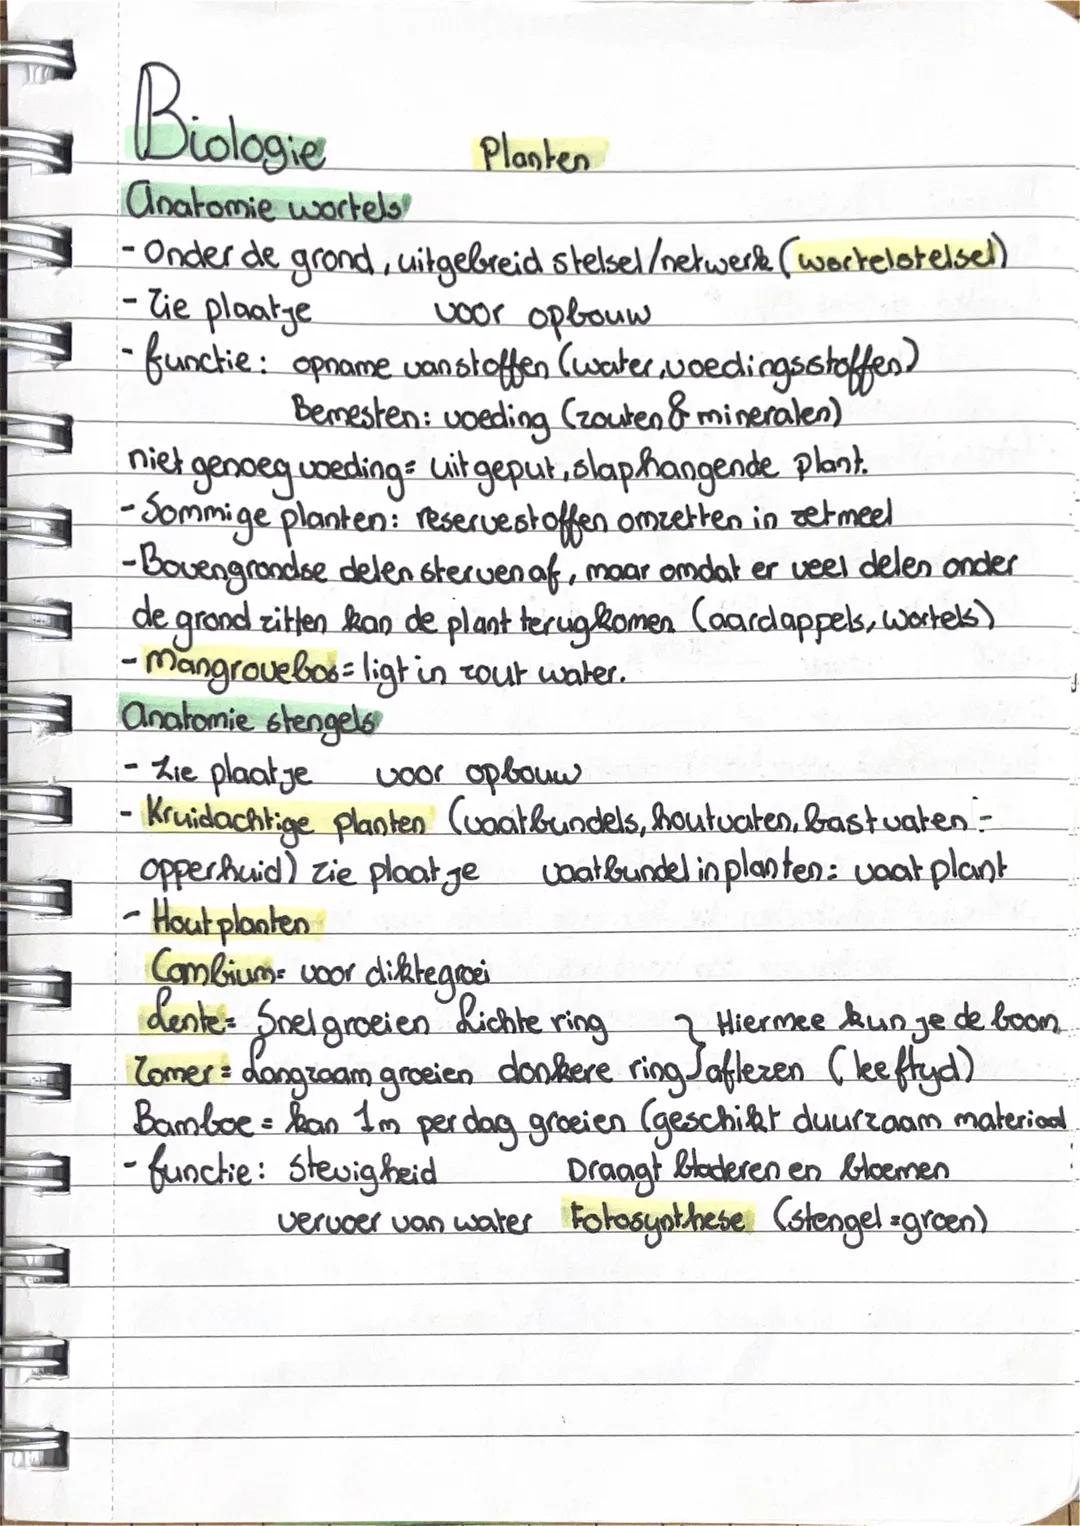 Biologie Planten
Anatomie wortels
- Onder de grond, uitgebreid stelsel/netwerk (wortelstelsel)
- Zie plaatje voor opbouw
- functie: opname van stoffen (water, voedingsstoffen)
Bemesten: voeding (zouten & mineralen)
niet genoeg voeding = uitgeput, slaphangende plant.
- Sommige planten: reservestoffen omzetten in zetmeel
- Bovengrondse delen sterven af, maar omdat er veel delen onder
de grond zitten kan de plant terugkomen (aardappels, wortels)
- Mangrovebos = ligt in zout water.
Anatomie stengels
- Zie plaatje voor opbouw
- Kruidachtige planten (vaatbundels, houtvaten, bastvaten -
opperhuid) zie plaatje vaatbundel in planten: vaatplant
- Houtplanten
Cambium = voor diktegroei
Lente = Snel groeien Lichte ring } Hiermee kun je de boom
Zomer = Langzaam groeien donkere ring aflezen (leeftyd)
Bamboe = kan 1m per dag groeien (geschikt duurzaam materiaal
- functie: Stevigheid Draagt bladeren en bloemen
vervoer van water Fotosynthese (stengel = groen)